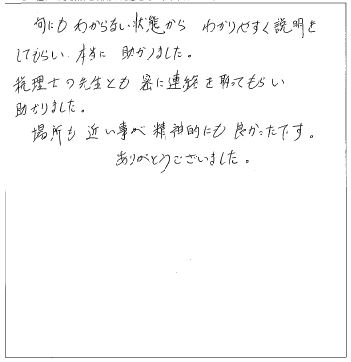 何にも わからない状態から わかりやすく説明を
してもらい 本当に 助かりました。
税理士の先生とも 密に連絡を取ってもらい
助かりました。
場所も 近い事が 精神的にも 良かったです。
ありがとうございました。